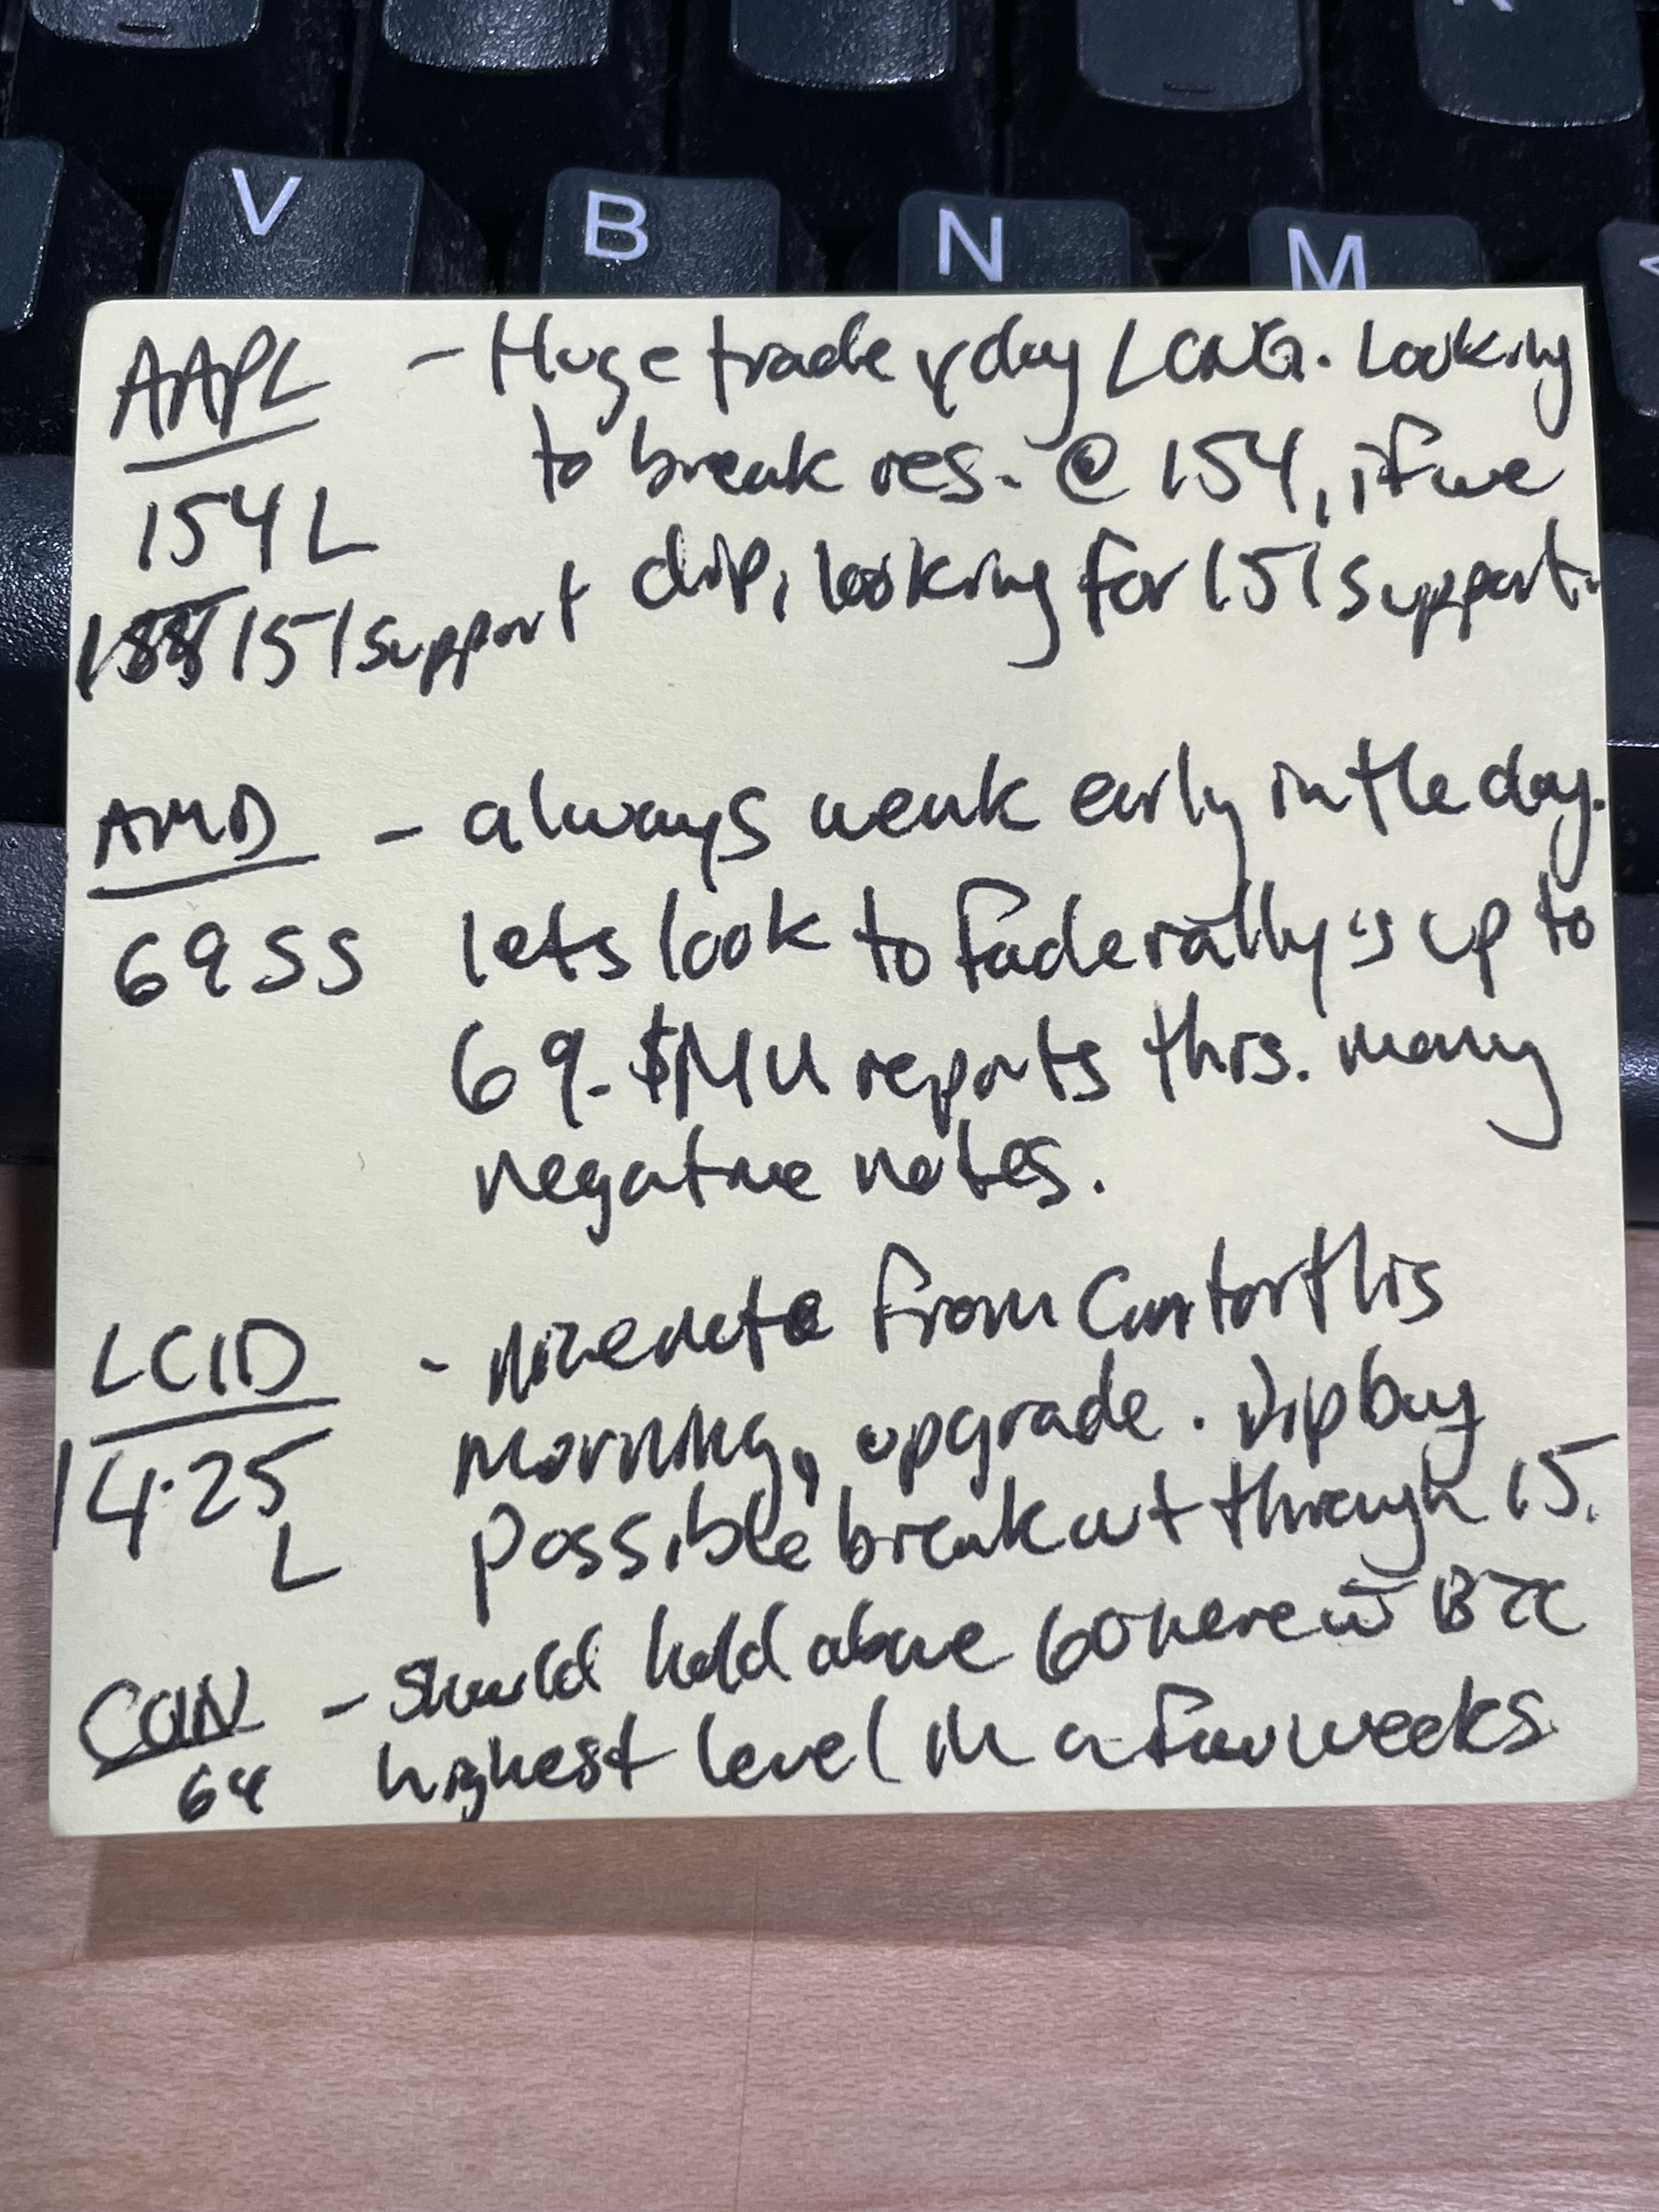 V B N M
AAPL - Huge trade yday LONG. Looking
154 L to break res. @ 154, if we
151 support dip, looking for 151 support.
AMD - always weak early in the day.
69 SS lets look to fade rally's up to
69. $MU reports this. many
negative notes.
LCID - Nice note from Cantor this
14.25 morning, upgrade. Dip buy
L possible breakout through 15.
COIN - should hold above 60 here w BTC
64 highest level in a few weeks